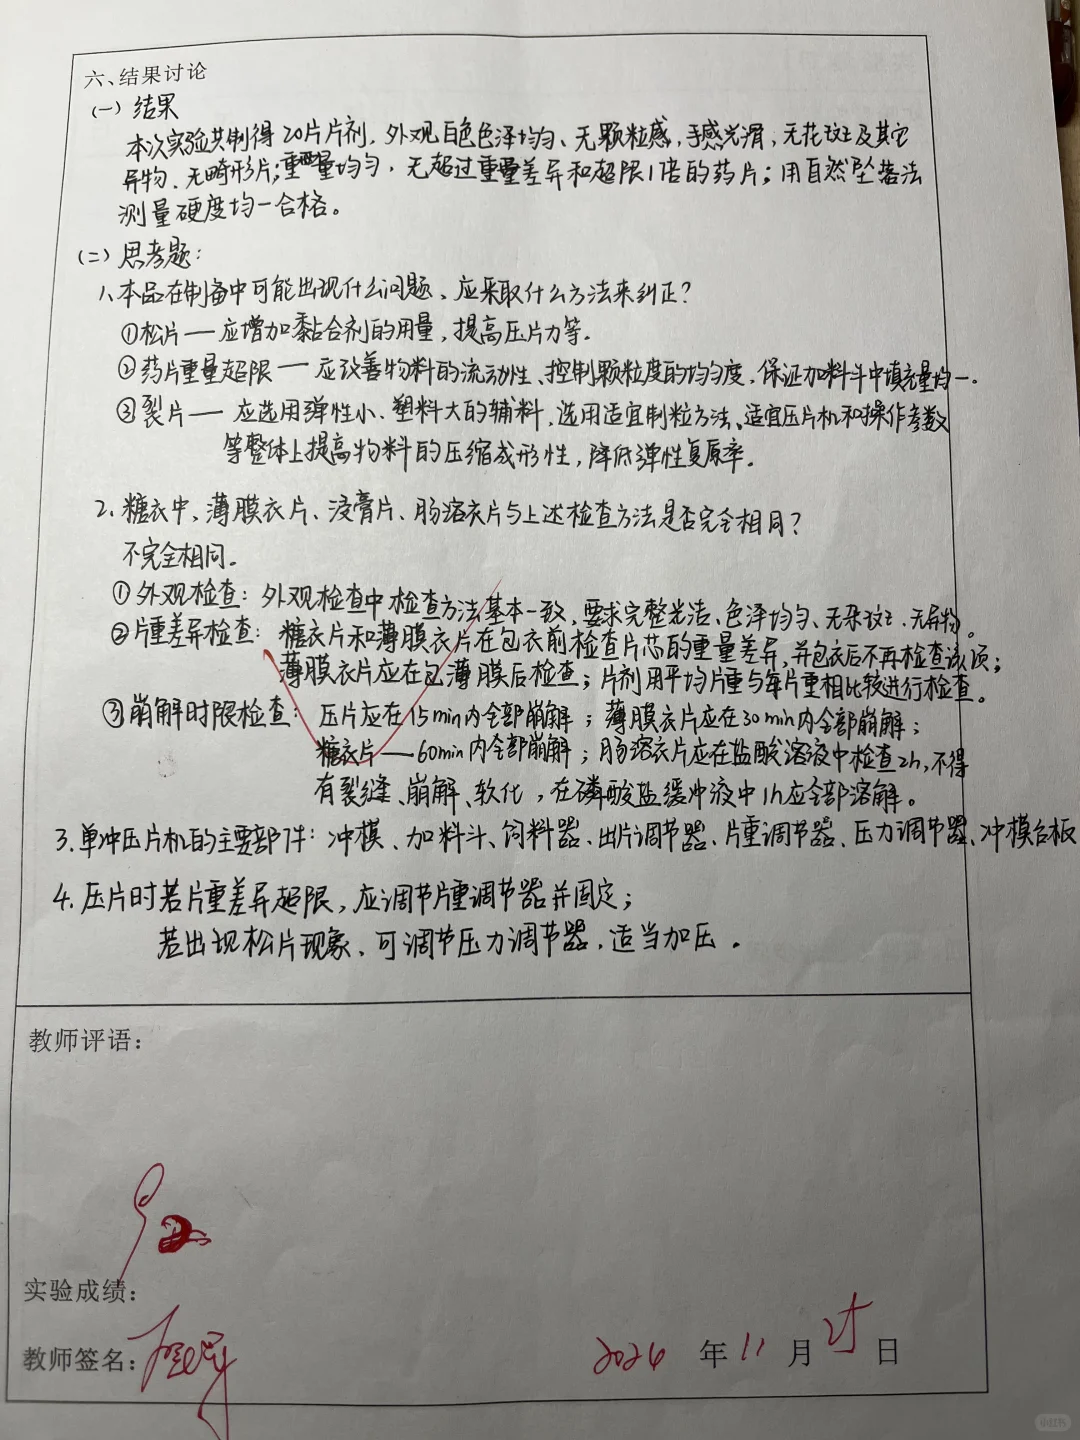 六、结果讨论
(一) 结果
本次实验共制得20片片剂，外观白色色泽均匀、无颗粒感，手感光滑，无花斑及其它
异物、无畸形片；重量均匀，无超过重量差异和超限1倍的药片；用自然坠落法
测量硬度均一合格。
(二) 思考题：
1、本品在制备中可能出现什么问题、应采取什么方法来纠正？
①松片——应增加黏合剂的用量，提高压片力等.
②药片重量超限——应改善物料的流动性、控制颗粒度的均匀度，保证加料斗中填充量均一.
③裂片——应选用弹性小、塑料大的辅料，选用适宜制粒方法、适宜压片机和操作参数
等整体上提高物料的压缩成形性，降低弹性复原率.
2、糖衣中、薄膜衣片、浸膏片、肠溶衣片与上述检查方法是否完全相同？
不完全相同.
①外观检查：外观检查中检查方法基本一致，要求完整光洁、色泽均匀、无杂斑、无异物。
②片重差异检查：糖衣片和薄膜衣片在包衣前检查片芯的重量差异，并包衣后不再检查该项；
薄膜衣片应在包薄膜后检查；片剂用平均片重与每片重相比较进行检查。
③崩解时限检查：压片应在15min内全部崩解；薄膜衣片应在30min内全部崩解；
糖衣片——60min内全部崩解；肠溶衣片应在盐酸溶液中检查2h，不得
有裂缝、崩解、软化，在磷酸盐缓冲液中1h应全部溶解。
3.单冲压片机的主要部件：冲模、加料斗、饲料器、出片调节器、片重调节器、压力调节器、冲模台板
4.压片时若片重差异超限，应调节片重调节器并固定；
若出现松片现象、可调节压力调节器，适当加压。
教师评语：
实验成绩：
教师签名：
2024 年 11 月 日
小红书